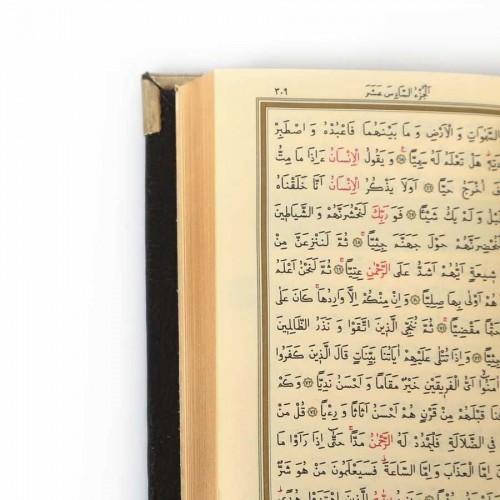 الجزء السادس عشر
٣٠٩
السَّمٰوَاتِ وَ الْاَرْضِ وَ مَا بَيْنَهُمَا فَاعْبُدْهُ وَ اصْطَبِرْ
هَلْ تَعْلَمُ لَهُ سَمِيًّا ﴿٦٥﴾ وَ يَقُولُ الْاِنْسَانُ ءَاِذَا مَا مِتُّ
اُخْرَجُ حَيًّا ﴿٦٦﴾ اَوَلَا يَذْكُرُ الْاِنْسَانُ اَنَّا خَلَقْنَاهُ
وَ لَمْ يَكُ شَيْئًا ﴿٦٧﴾ فَوَ رَبِّكَ لَنَحْشُرَنَّهُمْ وَ الشَّيَاطِينَ
لَنُحْضِرَنَّهُمْ حَوْلَ جَهَنَّمَ جِثِيًّا ﴿٦٨﴾ ثُمَّ لَنَنْزِعَنَّ مِنْ
شِيعَةٍ اَيُّهُمْ اَشَدُّ عَلَى الرَّحْمٰنِ عِتِيًّا ﴿٦٩﴾ ثُمَّ لَنَحْنُ اَعْلَمُ
هُمْ اَوْلٰى بِهَا صِلِيًّا ﴿٧٠﴾ وَ اِنْ مِنْكُمْ اِلَّا وَارِدُهَا كَانَ عَلٰى
حَتْمًا مَقْضِيًّا ﴿٧١﴾ ثُمَّ نُنَجِّي الَّذِينَ اتَّقَوْا وَ نَذَرُ الظَّالِمِينَ
جِثِيًّا ﴿٧٢﴾ وَ اِذَا تُتْلٰى عَلَيْهِمْ اٰيَاتُنَا بَيِّنَاتٍ قَالَ الَّذِينَ كَفَرُوا
اٰمَنُوا اَيُّ الْفَرِيقَيْنِ خَيْرٌ مَقَامًا وَ اَحْسَنُ نَدِيًّا ﴿٧٣﴾ وَ كَمْ
قَبْلَهُمْ مِنْ قَرْنٍ هُمْ اَحْسَنُ اَثَاثًا وَ رِءْيًا ﴿٧٤﴾ قُلْ مَنْ
فِي الضَّلَالَةِ فَلْيَمْدُدْ لَهُ الرَّحْمٰنُ مَدًّا حَتّٰى اِذَا رَاَوْا مَا
اِمَّا الْعَذَابَ وَ اِمَّا السَّاعَةَ فَسَيَعْلَمُونَ مَنْ هُوَ شَرٌّ